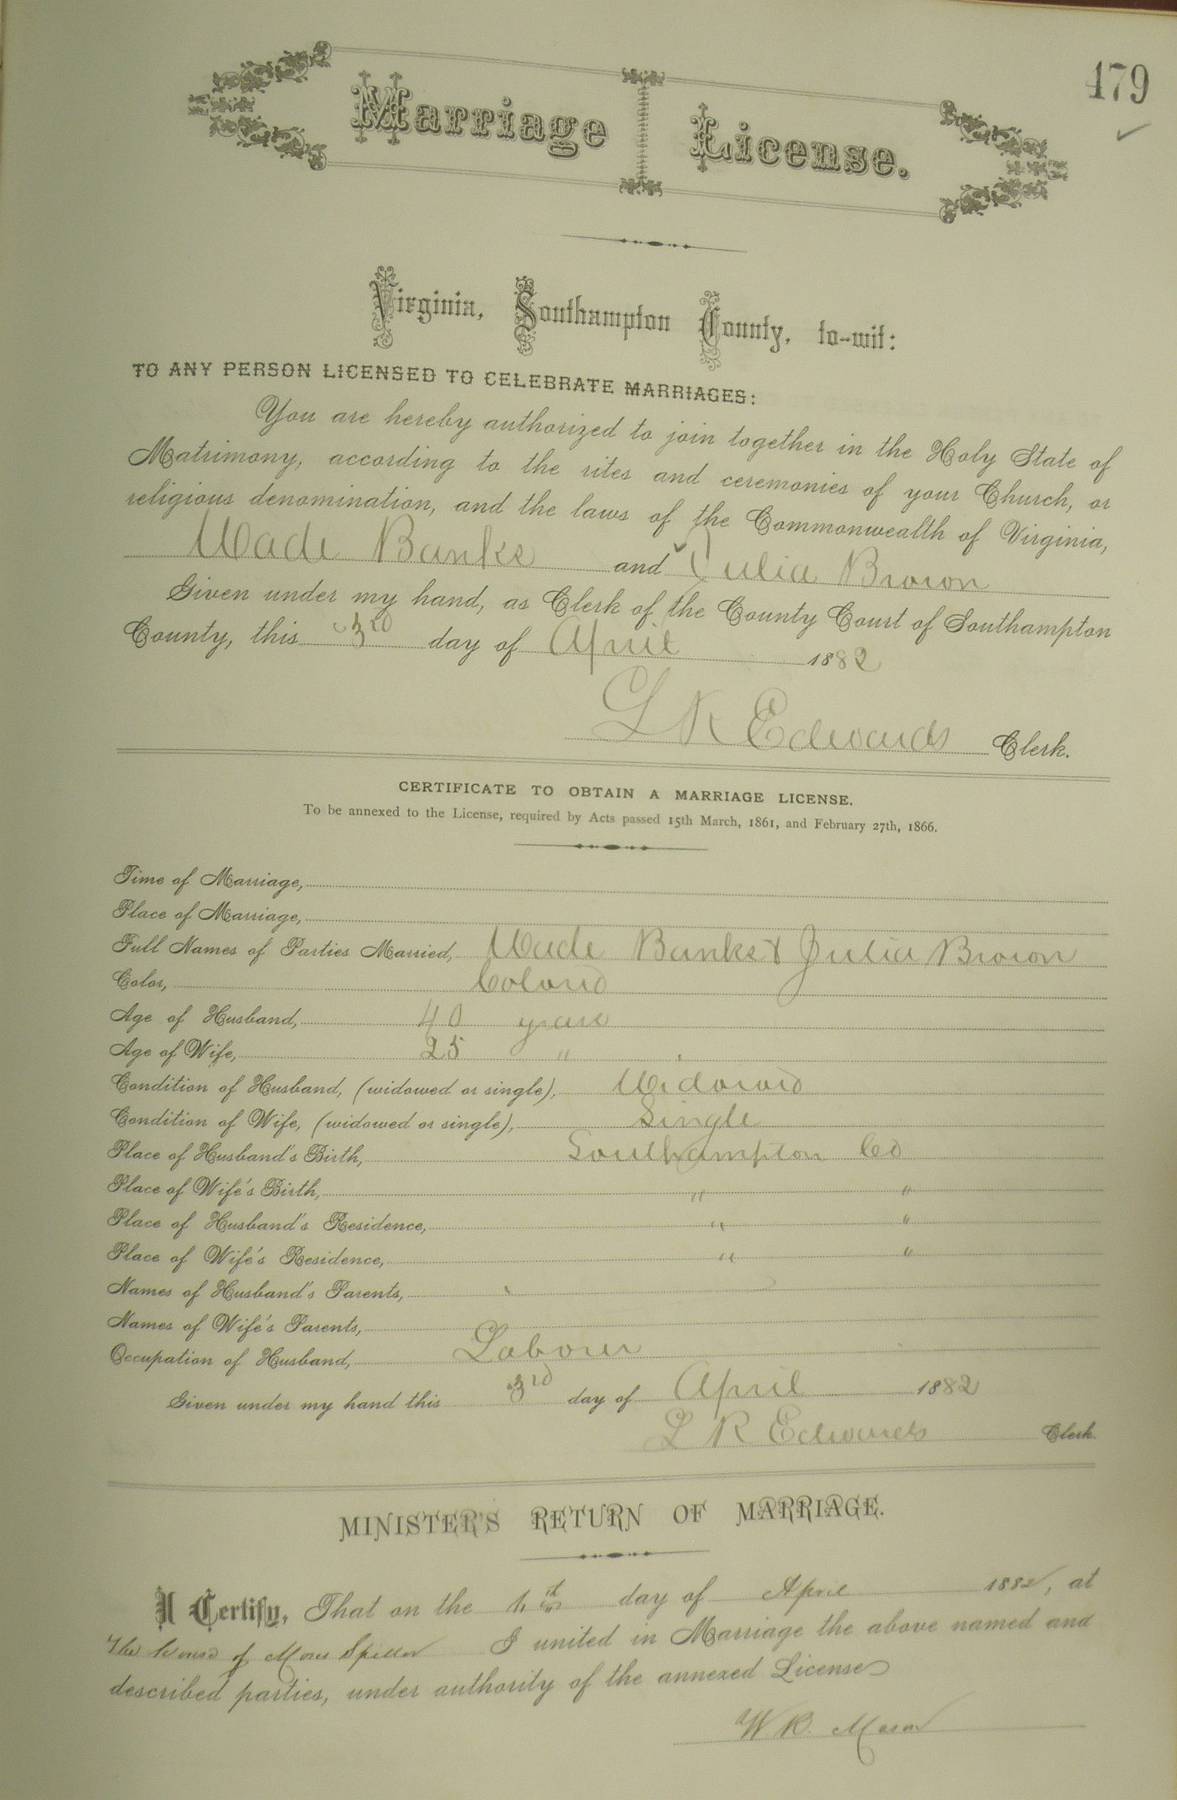 479
Marriage License.
Virginia, Southampton County, to-wit:
TO ANY PERSON LICENSED TO CELEBRATE MARRIAGES:
You are hereby authorized to join together in the Holy State of
Matrimony, according to the rites and ceremonies of your Church, or
religious denomination, and the laws of the Commonwealth of Virginia,
Wade Banks and Julia Brown
Given under my hand, as Clerk of the County Court of Southampton
County, this 3rd day of April 1882
L R Edwards Clerk.
CERTIFICATE TO OBTAIN A MARRIAGE LICENSE.
To be annexed to the License, required by Acts passed 15th March, 1861, and February 27th, 1866.
Time of Marriage,
Place of Marriage,
Full Names of Parties Married, Wade Banks & Julia Brown
Color, Colored
Age of Husband, 40 years
Age of Wife, 25 "
Condition of Husband, (widowed or single), Widowed
Condition of Wife, (widowed or single), Single
Place of Husband's Birth, Southampton Co
Place of Wife's Birth, " "
Place of Husband's Residence, " "
Place of Wife's Residence, " "
Names of Husband's Parents,
Names of Wife's Parents,
Occupation of Husband, Laborer
Given under my hand this 3rd day of April 1882
L R Edwards Clerk.
MINISTER'S RETURN OF MARRIAGE.
I Certify, That on the day of April 1882, at
The house of I united in Marriage the above named and
described parties, under authority of the annexed License
W. B.